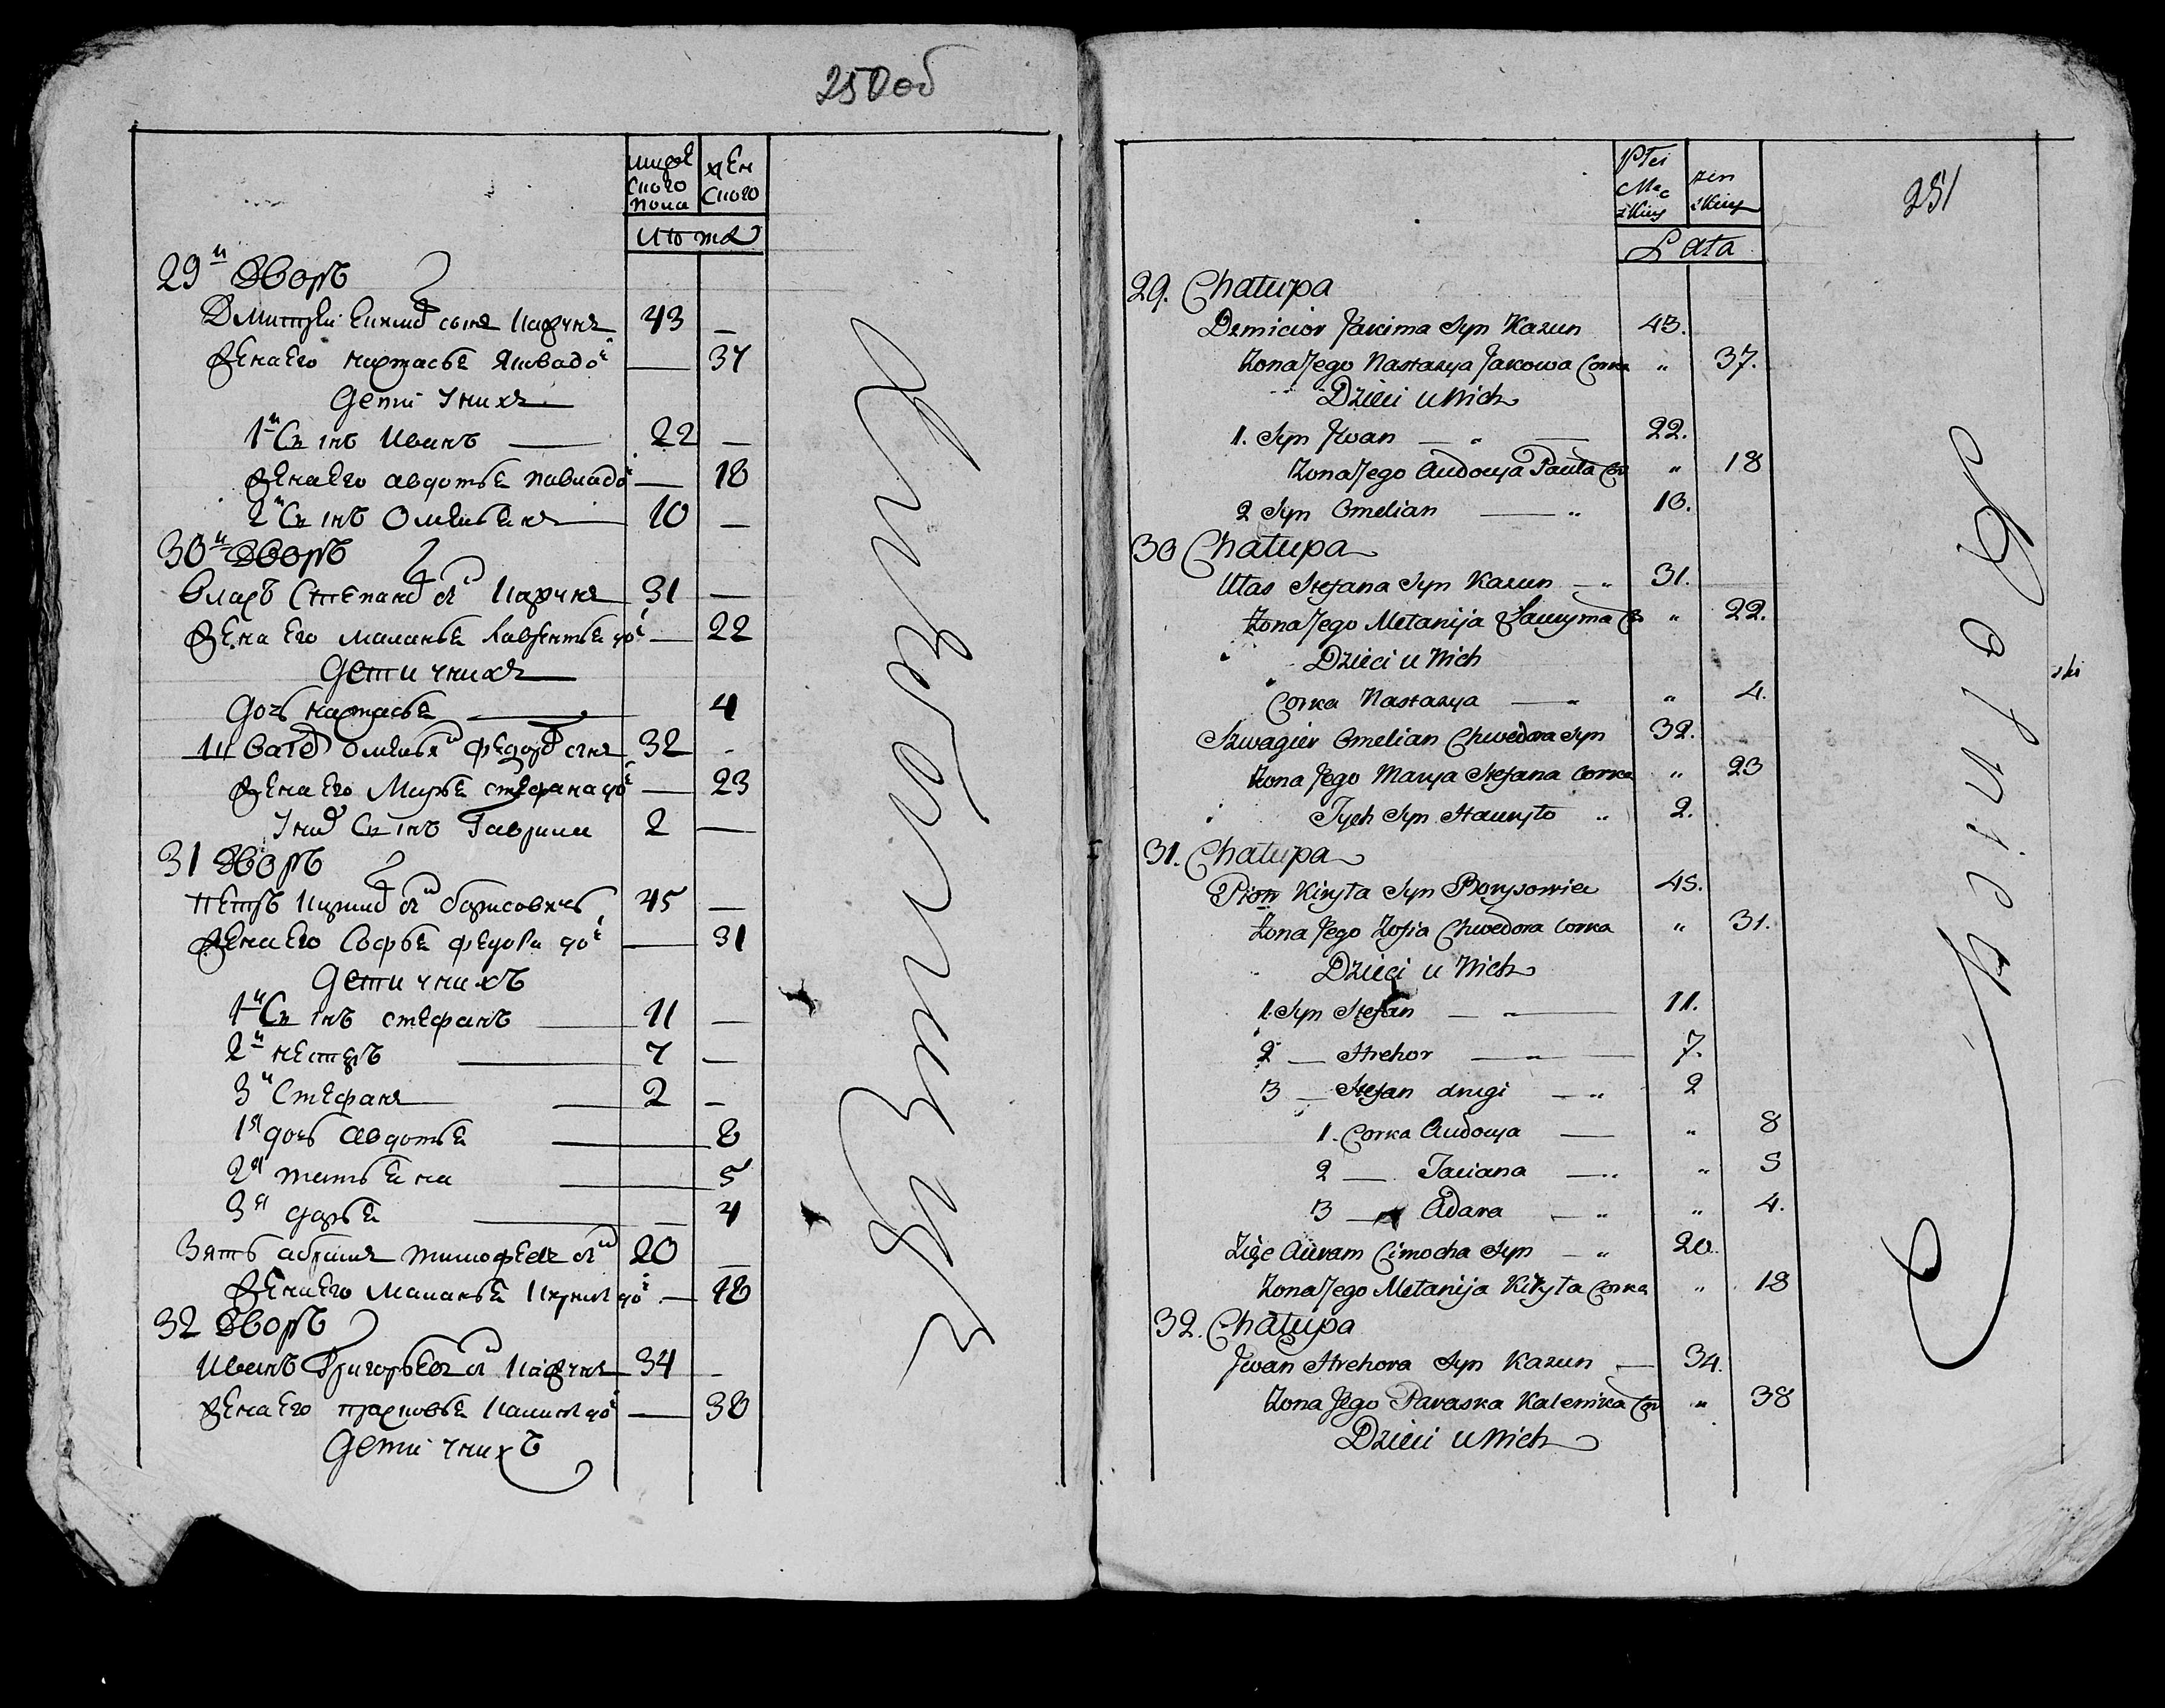 250об
мужескаго пола
женскаго
лѣта
29й Дворъ
Дмитрей Екимо сынъ Казунъ 43 —
Жена его Настасья Якова до — 37
Дети у нихъ
1й Сынъ Иванъ — 22 —
Жена его Авдотья Павла до — 18
2й Сынъ Омельянъ 10 —
30й Дворъ
Власъ Степано сы Казунъ 31 —
Жена его Маланья Лаврентья до — 22
Дети у нихъ
Дочь Настасья — 4
Швагеръ Омельян Федоро сынъ 32 -
Жена его Марья Стефана до — 23
У них Сынъ Гаврила 2 —
31 Дворъ
Петръ Кирило сы Борисовичъ 45 —
Жена его Софья Федора до — 31
Дети у нихъ
1й Сынъ Стефанъ — 11 —
2й Нестеръ — 7 —
3й Стефанъ — 2 —
1я дочь Авдотья — 8
2я Татьяна — 5
3я Дарья — 4
Зять Абрамъ Тимофеевъ сы 20 —
Жена его Маланья Кирила до — 18
32 Дворъ
Иванъ Григорьевъ сы Казунъ 34 -
Жена его Прасковья Калини до — 38
Дети у нихъ
251
Płci
Męzkiey
żenskiey
Lata
29. Chałupa
Dzmicior Jakima Syn Kazun 43.
Żona Jego Nastazya Jakowa Corka " 37.
Dzieci u Nich
1. Syn Jwan — " — 22.
Żona Jego Audocya Pauła Cor " 18
2 Syn Omelian — " 10.
30 Chałupa
Ułas Stefana Syn Kazun — " 31.
Żona Jego Mełanija Ławryma Co " 22.
Dzieci u Nich
Corka Nastazya — " " 4.
Szwagier Omelian Chwedora Syn 32.
Żona Jego Marya Stefana Corka " 23
Tych Syn Hauryło " 2.
31. Chałupa
Piotr Kiryła Syn Borysowicz 45.
Żona Jego Zofia Chwedora Corka " 31.
Dzieci u Nich
1. Syn Stefan — " — 11.
2 — Hrehor — " — 7.
3 — Stefan drugi — " 2
1. Corka Audocya — " 8
2 — Taciana — " " 5
3 — Adara — " " 4.
Zięć Auram Cimocha Syn — " 20.
Żona Jego Mełanija Kiryła Corka " 18
32. Chałupa
Jwan Hrehora Syn Kazun — 34.
Żona Jego Paraska Kalenika Cor " 38
Dzieci u Nich
ski